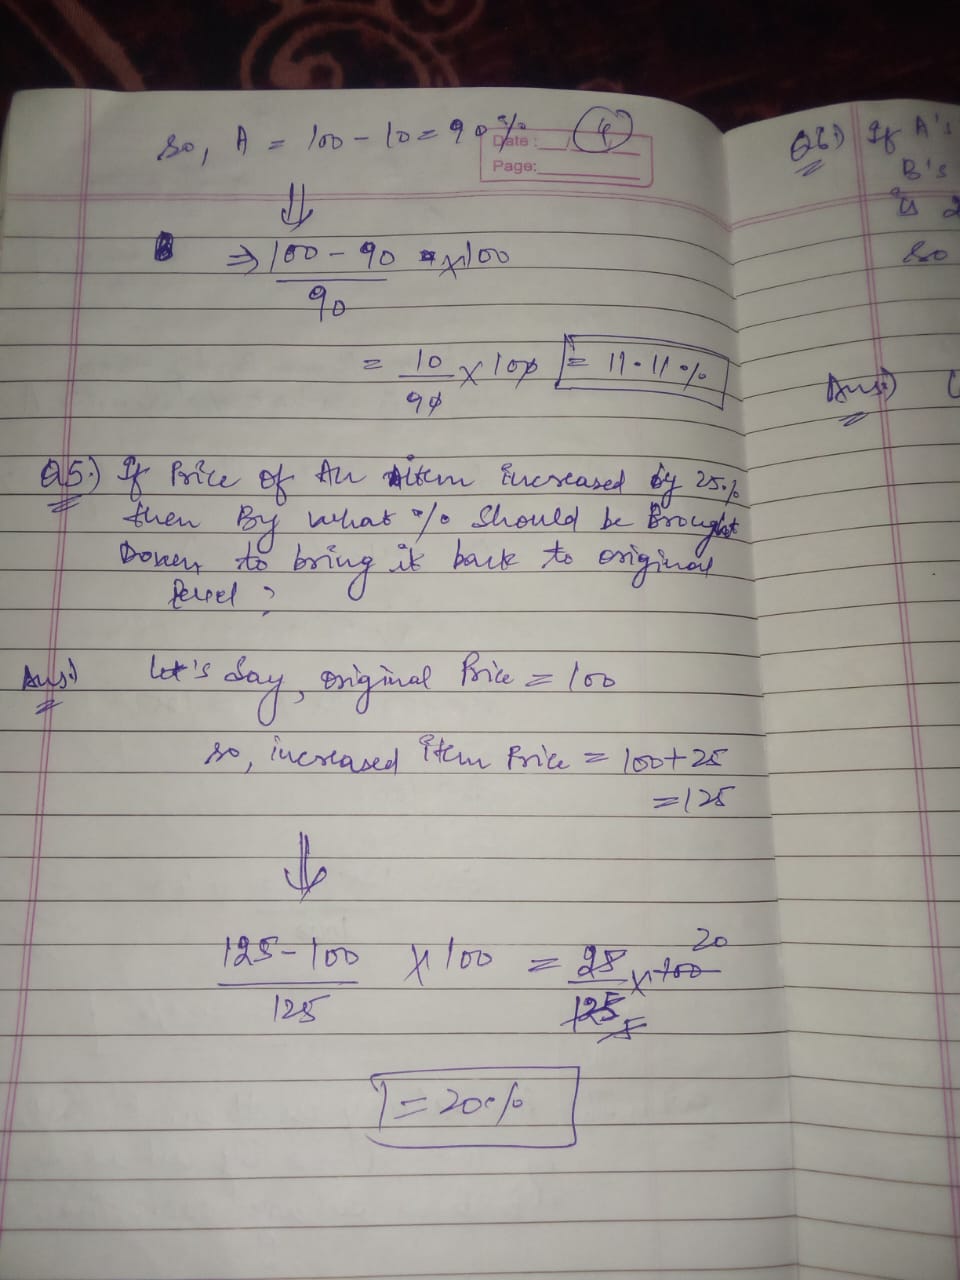 so, A = 100 - 10 = 90% 4
Date :
Page:
⇓
⇒ 100 - 90 × 100
90
= 10 × 100 = 11.11%
90
Q5.) If Price of An item increased by 25%
then By what % should be Brought
Down, to bring it back to original
level ?
Ans.) let's Say, original Price = 100
so, increased item Price = 100 + 25
= 125
⇓
125 - 100 × 100 = 25 × 100 20
125 125 5
= 20%
Q6.) If A's
B's
is 2
so
Ans.)